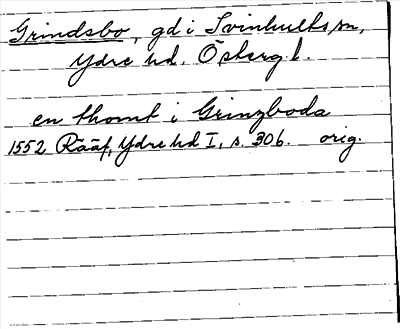 Grindsbo, gd i Svinhults sn,
Ydre hd. Östergl.
en thomt i Grinzboda
1552 Rääf, Ydre hd I, s. 306. orig.